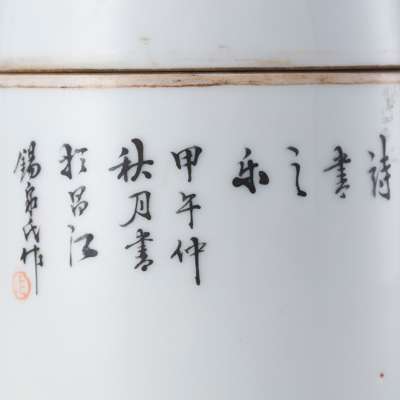 詩書之乐
甲午仲
秋月書
於昌江
錫良氏作